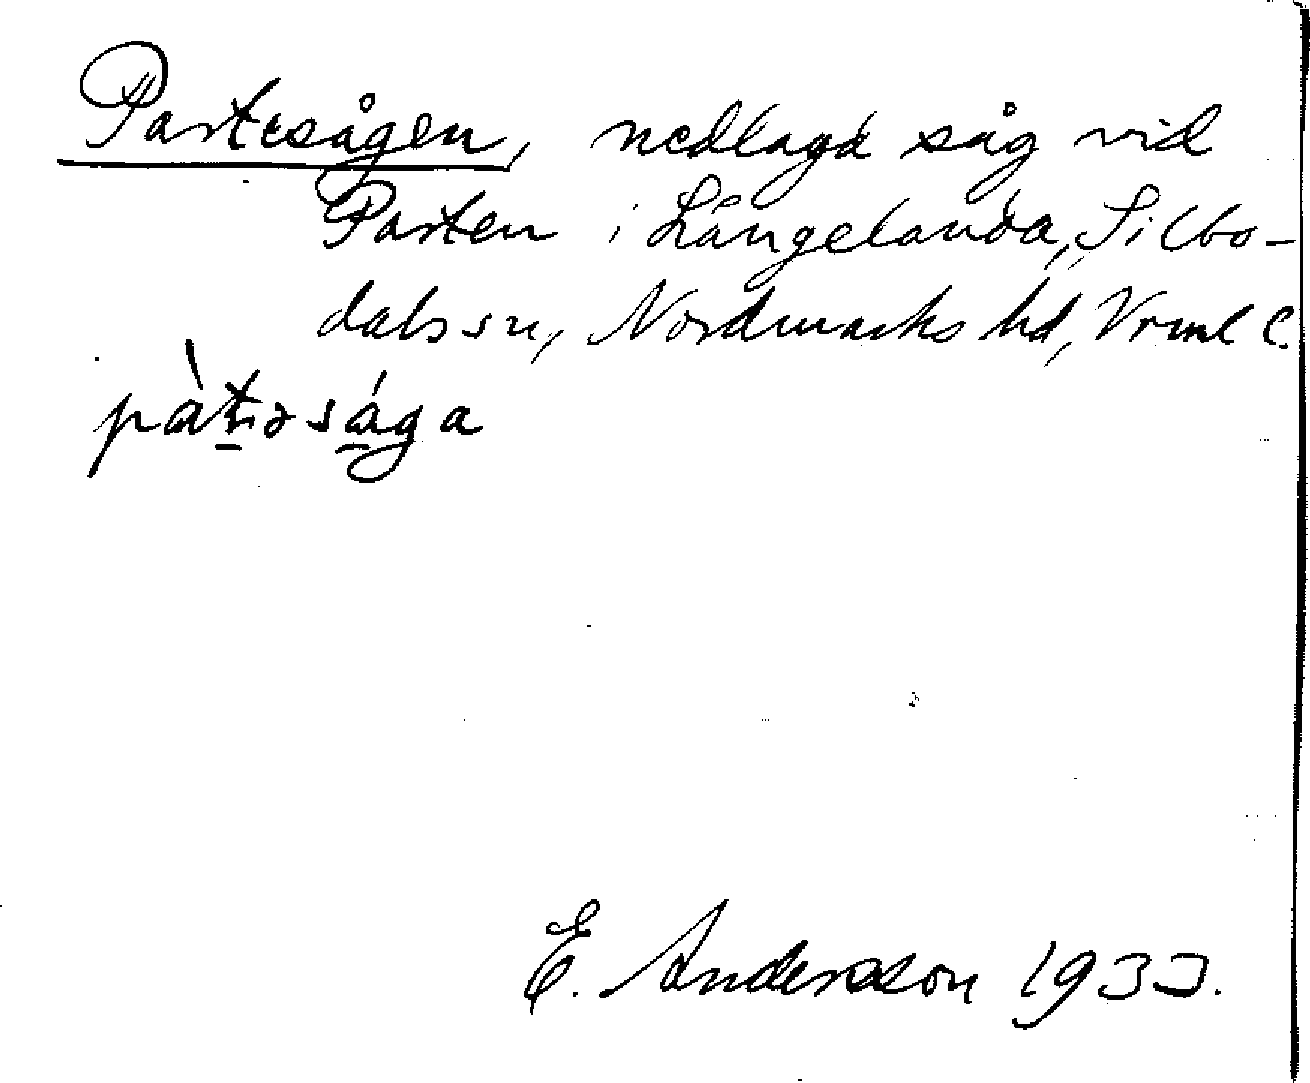 Partesågen, nedlagd såg vid
Parten i Långelanda, Silbo-
dals sn, Nordmarks hd, Vrml l.
pàt̠əsá̠ga
E. Andersson 1933.